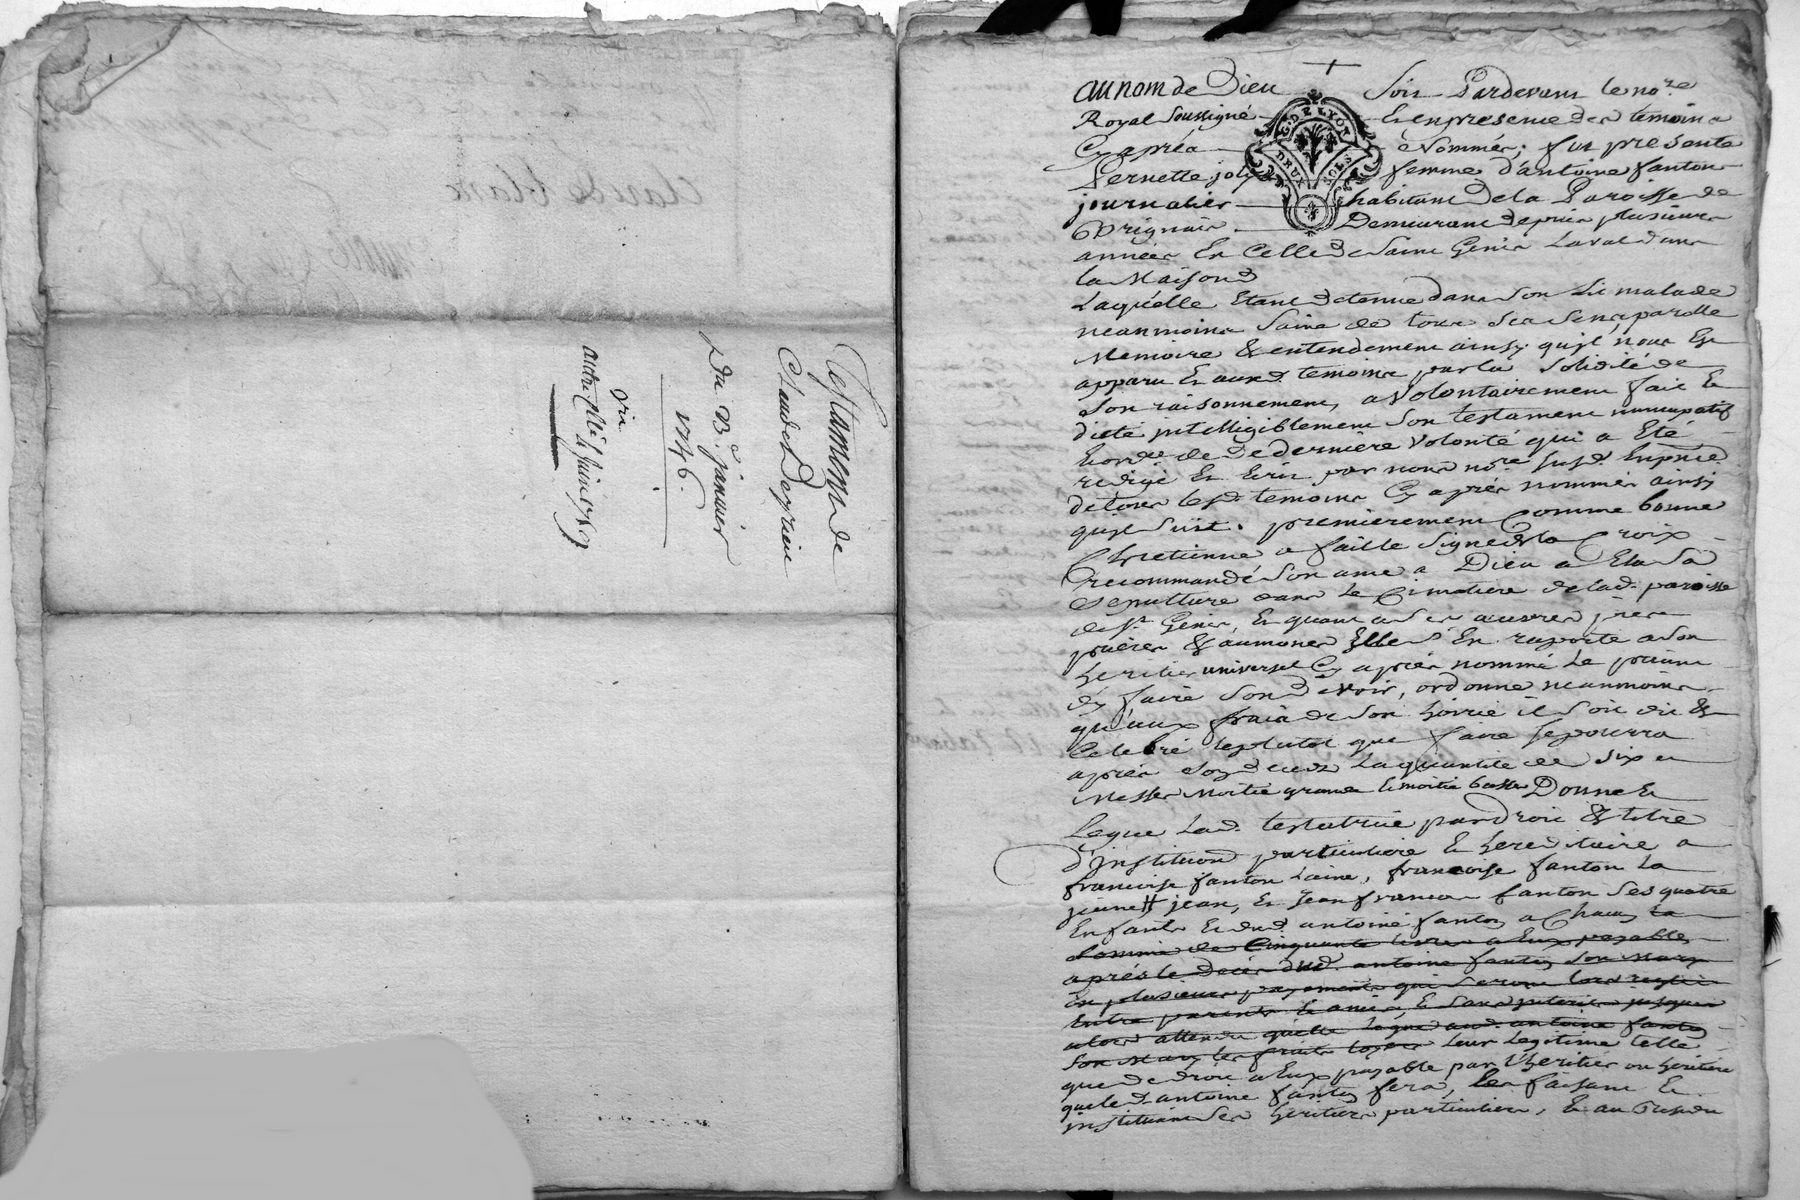 Testament de
Claude Deyrieu
Du 23e janvier
1746.
vu
4 juin 1767
au nom de Dieu Soit Pardevant le nore
Royal soussigné & en presence des temoins
Cy après Nommés; fut presente
Pernette joly femme d'antoine fanton
journalier habitant de la Paroisse de
Brignais Demeurant depuis plusieurs
années En Celle de Saint Genis Laval dans
la Maison d
Laquelle Etant detenue dans son Lit malade
neanmoins saine de tous ses sens, parolle
Memoire & entendement ainsy qu'jl nous Est
apparu & auxd. temoins par la solidité de
son raisonnement, a volontairement fait &
dicté jntelligiblement son testament nuncupatif
& ordce de derniere volonté qui a Eté
redigé En Ecrit par nous nore susd. En pnce
de tous lesd. temoins Cy après nommés ainsy
qu'jl suit. premierement Comme bonne
Chretienne a fait le signe de la Croix
recommandé son ame a Dieu a Elu sa
sepulture dans le Cimetiere de lad. paroisse
de St. Genis, & quant a ses œuvres pies
prieres & aumones Elle s'En raporte a son
heritier universel Cy après nommé le priant
d'y faire son devoir, ordonne neanmoins
qu'aux frais de son hoirie il soit dit &
Celebré le plutot que faire se pourra
après son deces La quantité de six
Messes moitié grandes & moitié basses Donne &
Legue Lad. testatrice par droit & titre
d'jnstitution particuliere & hereditaire a
francoise fanton L'ainé, francoise fanton La
jeune, jean, & jean francois fanton ses quatre
Enfants & dud. antoine fanton a Chacun la
somme de Cinquante livres a Eux payable
après le deces dud. antoine fanton son mary
En plusieurs payements qui seront lors reglés
Entre parents & amis, & sans jnterets jusques
alors attendu qu'elle legue aud. antoine fanton
son mary les fruits leur Legitime telle
que de droit a Eux payable par l'heritier ou heritiere
que led. antoine fanton fera, les faisant &
jnstituant ses heritiers particuliers, & au residu
G. DE LYON
DEUX SOLS